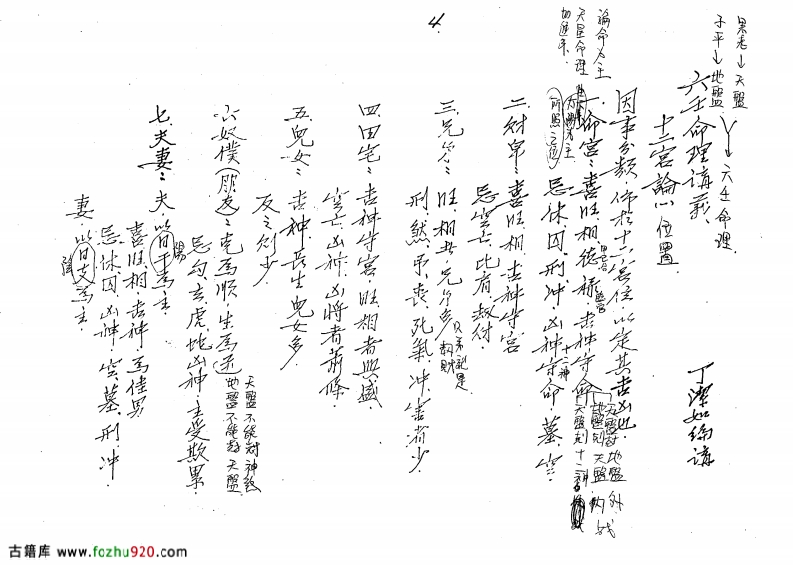 4.
果老→天盤
子平→地盤
六壬命理
論命為主
天星命理
六壬命理講義
丁潔如編講
十二宮論 位置
因事分類，佈於十二宮位，以定其吉凶也
一命宮：喜旺、相、德、祿、吉神守命
忌休、囚、刑、冲、凶神守命，墓、空
天盤剋地盤 外戰
地盤剋天盤 內戰
天盤剋十二神
二財帛：喜旺、相、吉神守宮
忌空亡
三兄弟：旺、相者兄弟多
刑、煞、弔、喪、死氣、冲害者少
四田宅：吉神守宮，旺相者興盛
空亡、凶神、凶將者蕭條
五兒女：吉神、長生兒女多
反之則少
六奴僕（朋友）：克為順，生為逆
天盤不能封神煞
地盤不能封天盤
忌勾、玄、虎、蛇凶神，主受欺累
七夫妻：夫，以日干為主
陽
喜旺、相、吉神，為佳男
忌休、囚、凶神、空、墓、刑、冲
妻，以日支為主
陰
古籍库 www.fozhu920.com